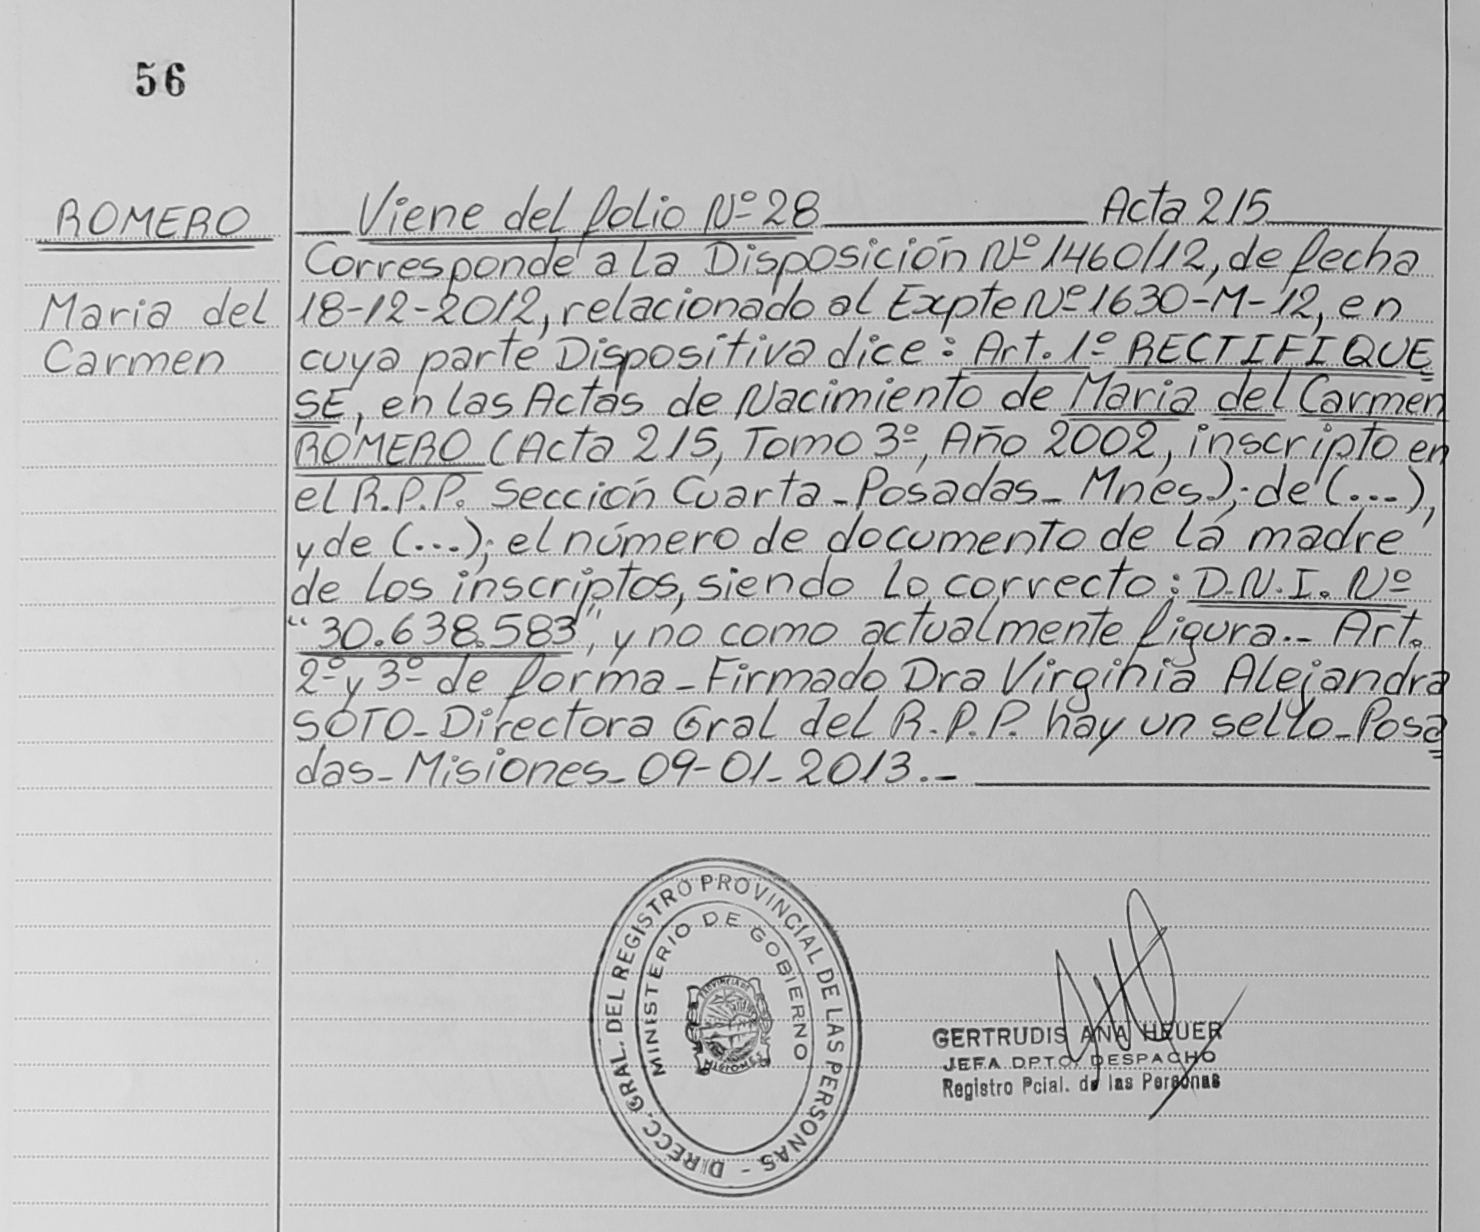 56
ROMERO
Maria del
Carmen
Viene del folio Nº 28 Acta 215
Corresponde a la Disposición Nº 1460/12, de fecha
18-12-2012, relacionado al Expte Nº 1630-M-12, en
cuya parte Dispositiva dice: Art. 1º RECTIFIQUE
SE, en las Actas de Nacimiento de Maria del Carmen
ROMERO (Acta 215, Tomo 3º, Año 2002, inscripto en
el R.P.P. Sección Cuarta - Posadas - Mnes); de (...),
y de (...); el número de documento de la madre
de los inscriptos, siendo lo correcto: D.N.I. Nº
"30.638.583", y no como actualmente figura.- Art.
2º y 3º de forma - Firmado Dra Virginia Alejandra
SOTO - Directora Gral del R.P.P. hay un sello - Posa
das - Misiones - 09-01-2013.-
DIRECC. GRAL. DEL REGISTRO PROVINCIAL DE LAS PERSONAS -
MINISTERIO DE GOBIERNO
PROVINCIA DE
MISIONES
GERTRUDIS ANA HEUER
JEFA DPTO. DESPACHO
Registro Pcial. de las Personas